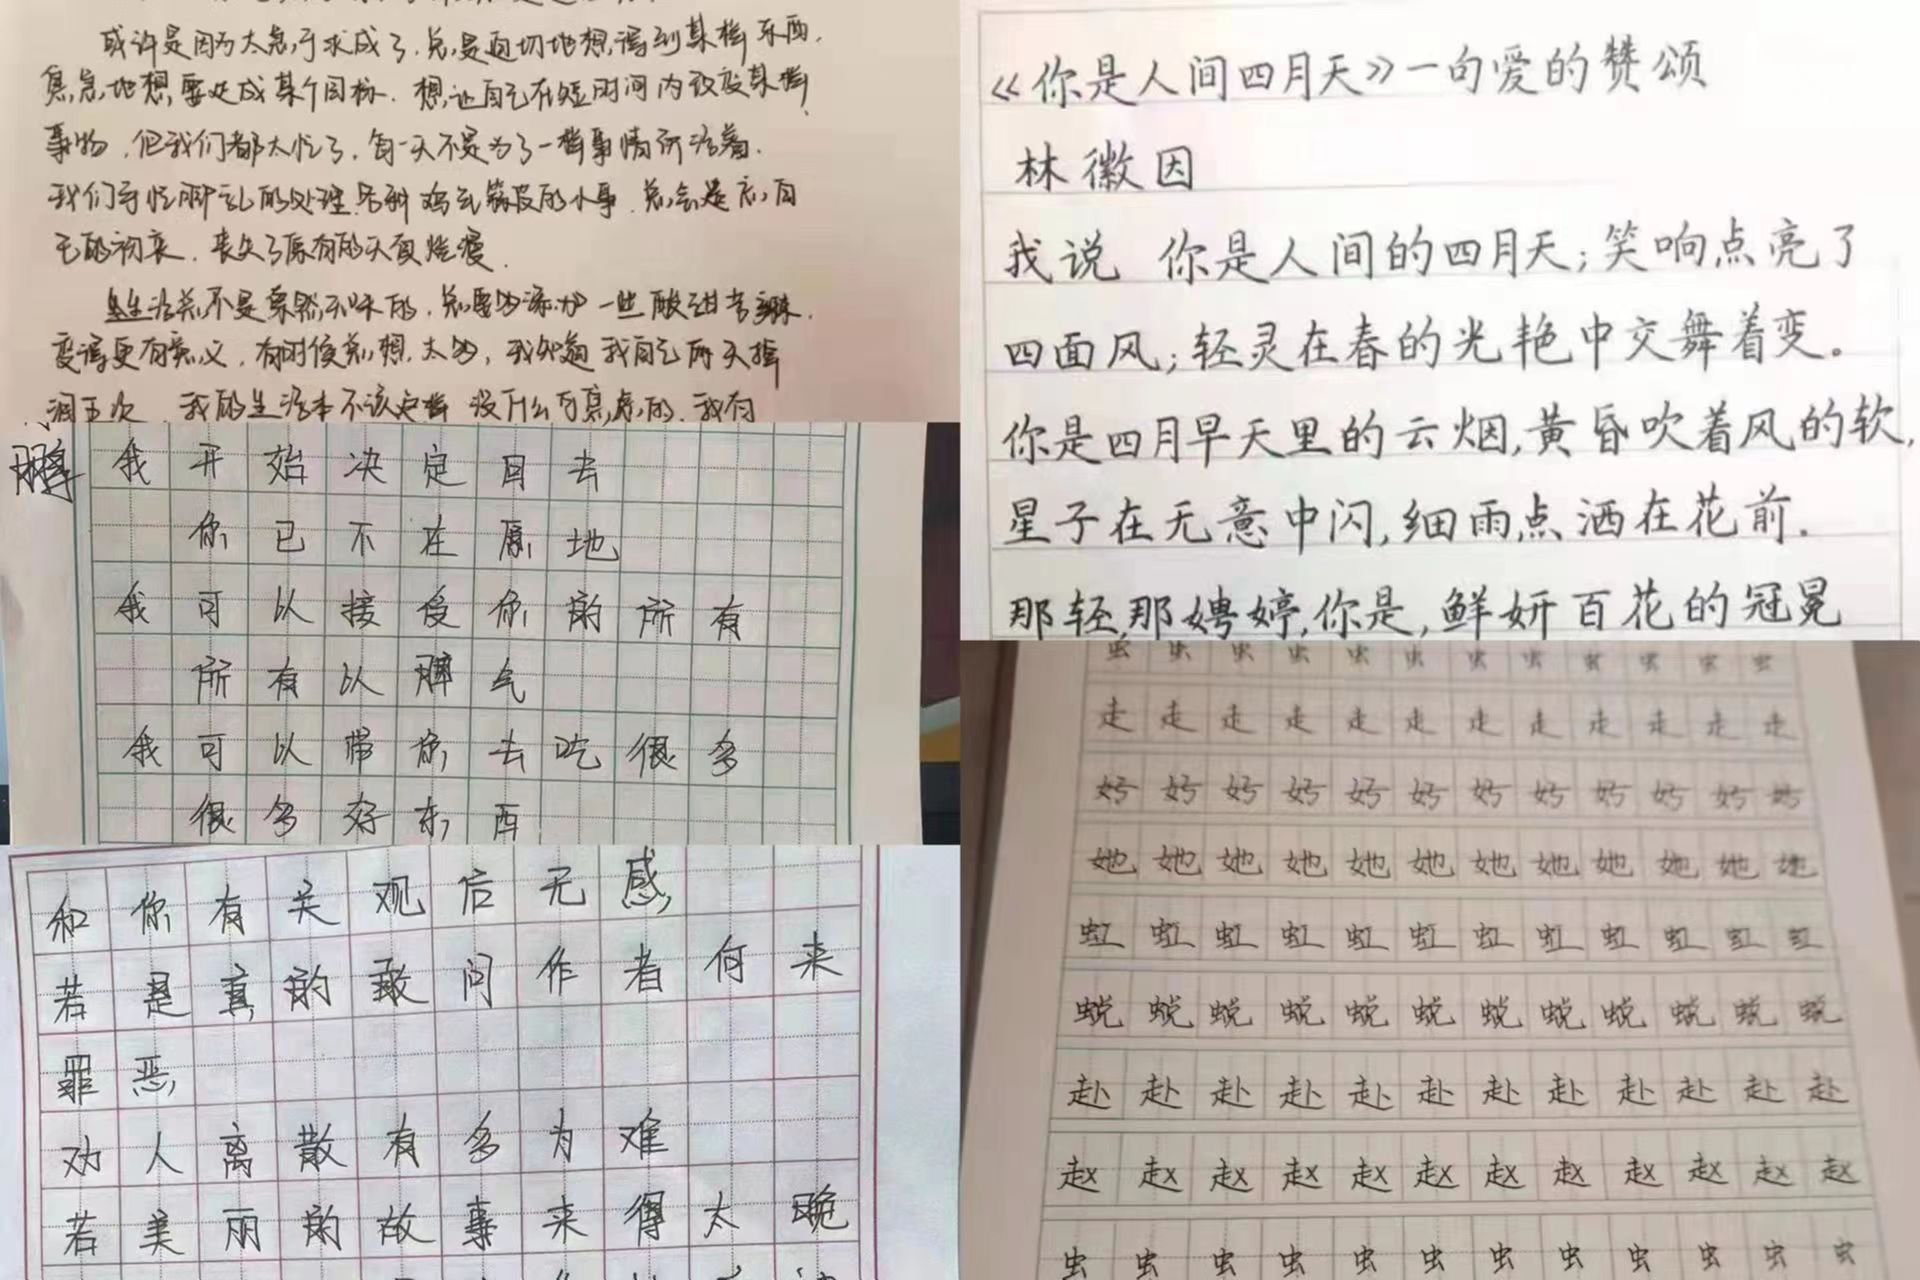 或许是因为太急于求成了.总是迫切地想得到某样东西.
焦急地想要达成某个目标.想让自己在短时间内改变某样
事物.但我们都太忙了.每一天不是为了一样事情所活着.
我们手忙脚乱的处理各种鸡毛蒜皮的小事.总会是忘自
己的初衷.丧失了原有的天真烂漫.
生活总不是索然无味的.总要为添加一些酸甜苦辣.
变得更有意义.有时便总想太多,我知道我自己两天掉
泪五次.我的生活本不该这样没什么可焦虑的.我有
我开始决定回去
你已不在原地
我可以接受你的所有
所有以脾气
我可以带你去吃很多
很多好东西
和你有关观后无感
若是真的敢问作者何来
罪恶
劝人离散有多为难
若美丽的故事来得太晚
《你是人间四月天》一句爱的赞颂
林徽因
我说 你是人间的四月天;笑响点亮了
四面风;轻灵在春的光艳中交舞着变。
你是四月早天里的云烟,黄昏吹着风的软,
星子在无意中闪,细雨点洒在花前.
那轻,那娉婷,你是,鲜妍百花的冠冕
虫虫虫虫虫虫虫虫虫虫虫虫
走走走走走走走走走走走走
好好好好好好好好好好好好
她她她她她她她她她她她她
虹虹虹虹虹虹虹虹虹虹虹虹
蜕蜕蜕蜕蜕蜕蜕蜕蜕蜕蜕蜕
赴赴赴赴赴赴赴赴赴赴赴赴
赵赵赵赵赵赵赵赵赵赵赵赵
虫虫虫虫虫虫虫虫虫虫虫虫